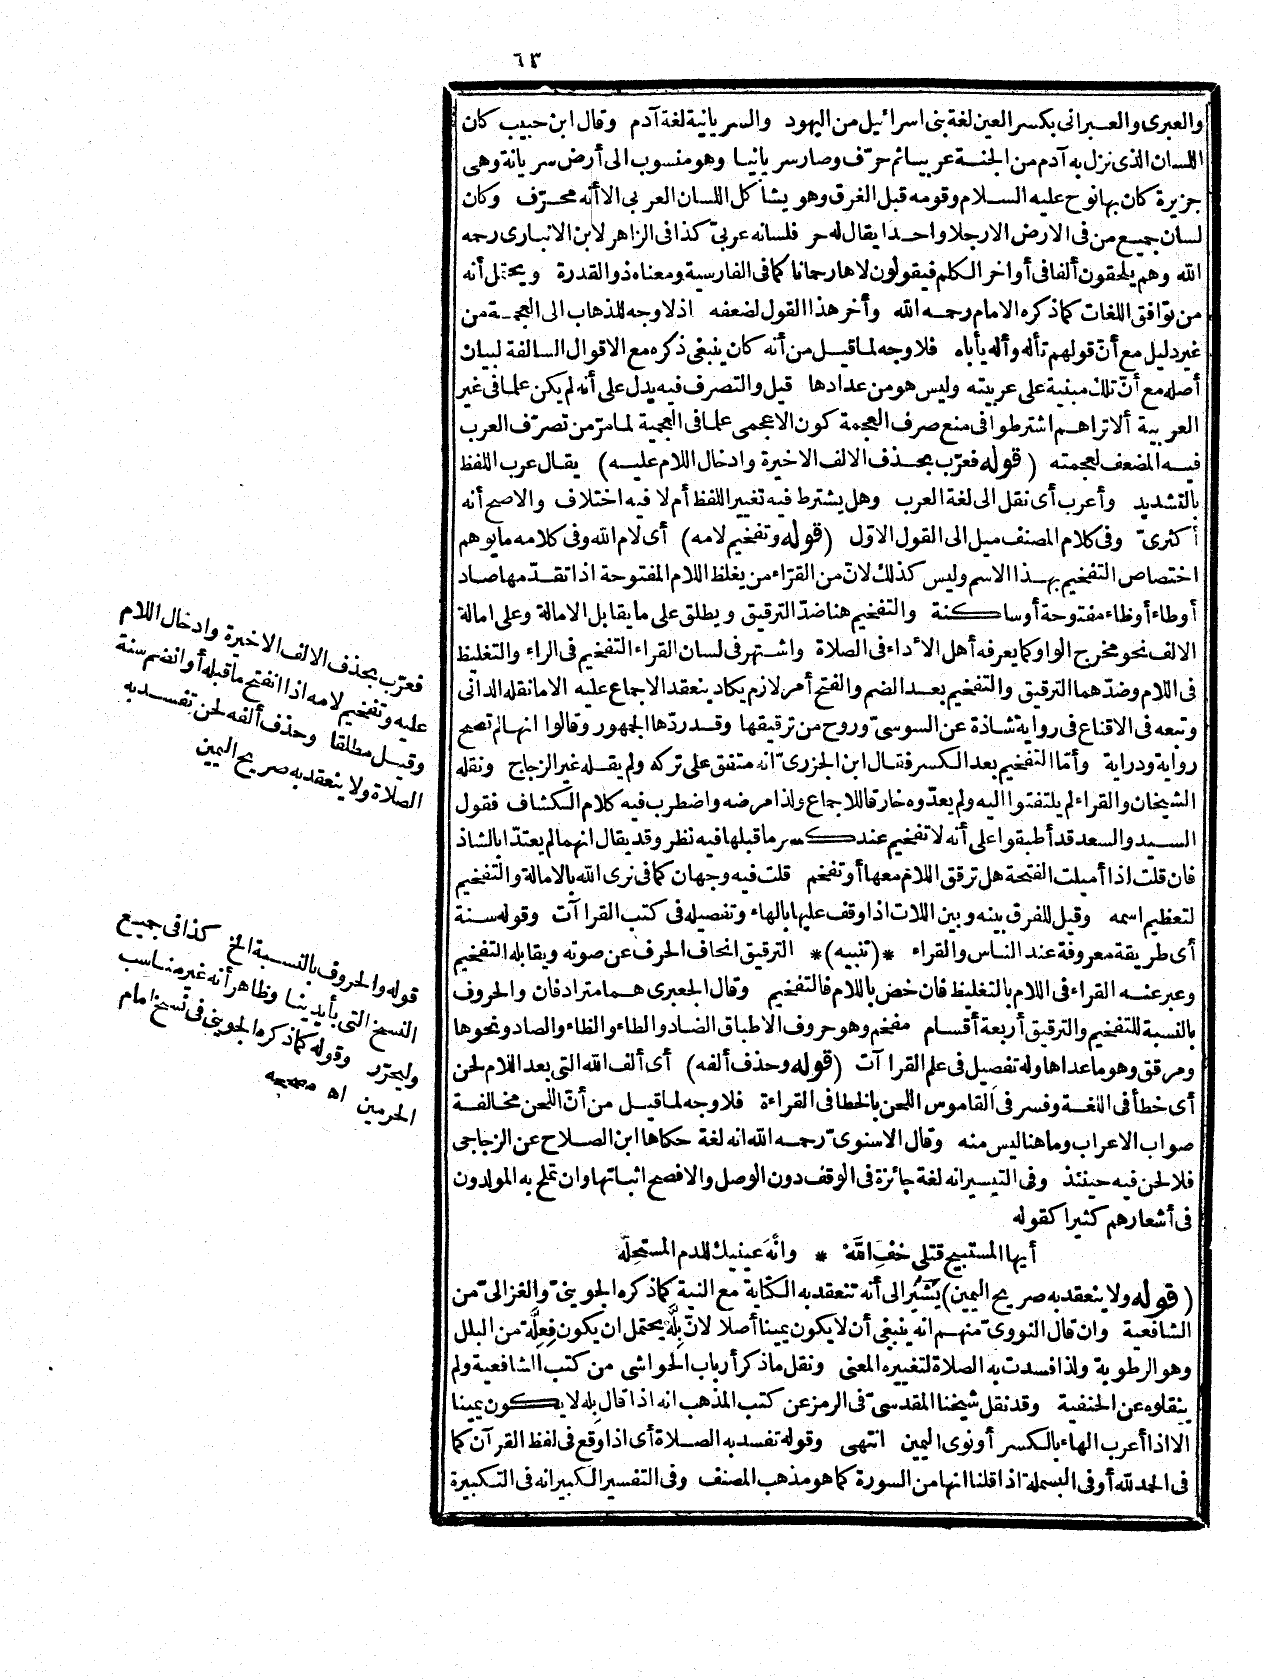 ٦٣
والعبرى والعبرانى بكسر العين لغة بنى اسرائيل من اليهود والسريانية لغة آدم وقال ابن حبيب كان
اللسان الذى نزل به آدم من الجنة عربيا ثم حرّف وصار سريانيا وهو منسوب الى أرض سريانة وهى
جزيرة كان بها نوح عليه السلام وقومه قبل الغرق وهو يشاكل اللسان العربى الا أنه محرّف وكان
لسان جميع من فى الارض الا رجلا واحدا يقال له حر فلسانه عربىّ كذا فى الزاهر لابن الانبارى رحمه
الله وهم يلحقون ألفا فى أواخر الكلم فيقولون لاها رحمانا كما فى الفارسية ومعناه ذو القدرة ويحتمل أنه
من توافق اللغات كما ذكره الامام رحمه الله وأخر هذا القول لضعفه اذ لا وجه للذهاب الى العجمة من
غير دليل مع أنّ قولهم تأله وأله يأباه فلا وجه لما قيل من أنه كان ينبغى ذكره مع الاقوال السالفة لبيان
أصله مع أنّ تلك مبنية على عربيته وليس هو من عدادها قيل والتصرف فيه يدل على أنه لم يكن علما فى غير
العربية ألا تراهم اشترطوا فى منع صرف العجمة كون الاعجمى علما فى العجمية لما مرّ من تصرّف العرب
فيه المضعف لعجمته (قوله فعرّب بحذف الالف الاخيرة وادخال اللام عليه) يقال عرب اللفظ
بالتشديد وأعرب أى نقل الى لغة العرب وهل يشترط فيه تغيير اللفظ أم لا فيه اختلاف والاصح أنه
أكثرىّ وفى كلام المصنف ميل الى القول الاوّل (قوله وتفخيم لامه) أى لام الله وفى كلامه ما يوهم
اختصاص التفخيم بهذا الاسم وليس كذلك لانّ من القرّاء من يغلظ اللام المفتوحة اذا تقدّمها صاد
أوطاء أوظاء مفتوحة أو ساكنة والتفخيم هنا ضدّ الترقيق ويطلق على ما يقابل الامالة وعلى امالة
الالف نحو مخرج الواو كما يعرفه أهل الأداء فى الصلاة واشتهر فى لسان القراء التفخيم فى الراء والتغليظ
فى اللام وضدّهما الترقيق والتفخيم بعد الضم والفتح أمر لازم يكاد ينعقد الاجماع عليه الا ما نقله الدانى
وتبعه فى الاقناع فى رواية شاذة عن السوسىّ وروح من ترقيقها وقد ردّها الجمهور وقالوا انها لم تصح
رواية ودراية وأمّا التفخيم بعد الكسر فقال ابن الجزرىّ انه متفق على تركه ولم يقله غير الزجاج ونقله
الشيخان والقراء لم يلتفتوا اليه ولم يعدّوه خارقا للاجماع ولذا مرضه واضطرب فيه كلام الكشاف فقول
السيد والسعد قد أطبقوا على أنه لا تفخيم عند كسر ما قبلها فيه نظر وقد يقال انهما لم يعتدّا بالشاذ
فان قلت اذا أميلت الفتحة هل ترقق اللام معها أو تفخم قلت فيه وجهان كما فى نرى الله بالامالة والتفخيم
لتعظيم اسمه وقيل للفرق بينه وبين اللات اذا وقف عليها بالهاء وتفصيله فى كتب القرا آت وقوله سنة
أى طريقة معروفة عند الناس والقراء * (تنبيه) * الترقيق انحاف الحرف عن صوته ويقابله التفخيم
وعبر عنه القراء فى اللام بالتغليظ فان خص باللام فالتفخيم وقال الجعبرى هما مترادفان والحروف
بالنسبة للتفخيم والترقيق أربعة أقسام مفخم وهو حروف الاطباق الضاد والطاء والظاء والصاد ونحوها
ومرقق وهو ما عداها وله تفصيل فى علم القرا آت (قوله وحذف ألفه) أى ألف الله التى بعد اللام لحن
أى خطأ فى اللغة وفسر فى القاموس اللحن بالخطا فى القراءة فلا وجه لما قيل من أنّ اللحن مخالفة
صواب الاعراب وما هنا ليس منه وقال الاسنوىّ رحمه الله انه لغة حكاها ابن الصلاح عن الزجاجى
فلا لحن فيه حينئذ وفى التيسير انه لغة جائزة فى الوقف دون الوصل والافصح اثباتها وان تملح به المولدون
فى أشعارهم كثيرا كقوله
أيها المستبيح قتلى خف اللَّهْ * وانْهَ عينيك للدم المستحلّه
(قوله ولا ينعقد به صريح اليمين) يشير الى أنه تنعقد به الكتابة مع النية كما ذكره الجوينىّ والغزالىّ من
الشافعية وان قال النووىّ منهم انه ينبغى أن لا يكون يمينا أصلا لانّ بِلَّه يحتمل ان يكون فِعِلَّة من البلل
وهو الرطوبة ولذا فسدت به الصلاة لتغييره المعنى ونقل ما ذكر أرباب الحواشى من كتب الشافعية ولم
ينقلوه عن الحنفية وقد نقل شيخنا المقدسىّ فى الرمز عن كتب المذهب انه اذا قال بِله لا يكون يمينا
الا اذا أعرب الهاء بالكسر أو نوى اليمين انتهى وقوله تفسد به الصلاة أى اذا وقع فى لفظ القرآن كما
فى الحمد لله أو فى البسملة اذا قلنا انها من السورة كما هو مذهب المصنف وفى التفسير الكبير انه فى التكبيرة
فعرّب بحذف الالف الاخيرة وادخال اللام
عليه وتفخيم لامه اذا انفتح ما قبله أو انضم سنة
وقيل مطلقا وحذف ألفه لحن تفسد به
الصلاة ولا ينعقد به صريح اليمين
قوله والحروف بالنسبة الخ كذا فى جميع
النسخ التى بأيدينا وظاهر أنه غير مناسب
وليحرّر وقوله كما ذكره الجوينى فى نسخ امام
الحرمين اه مصححه